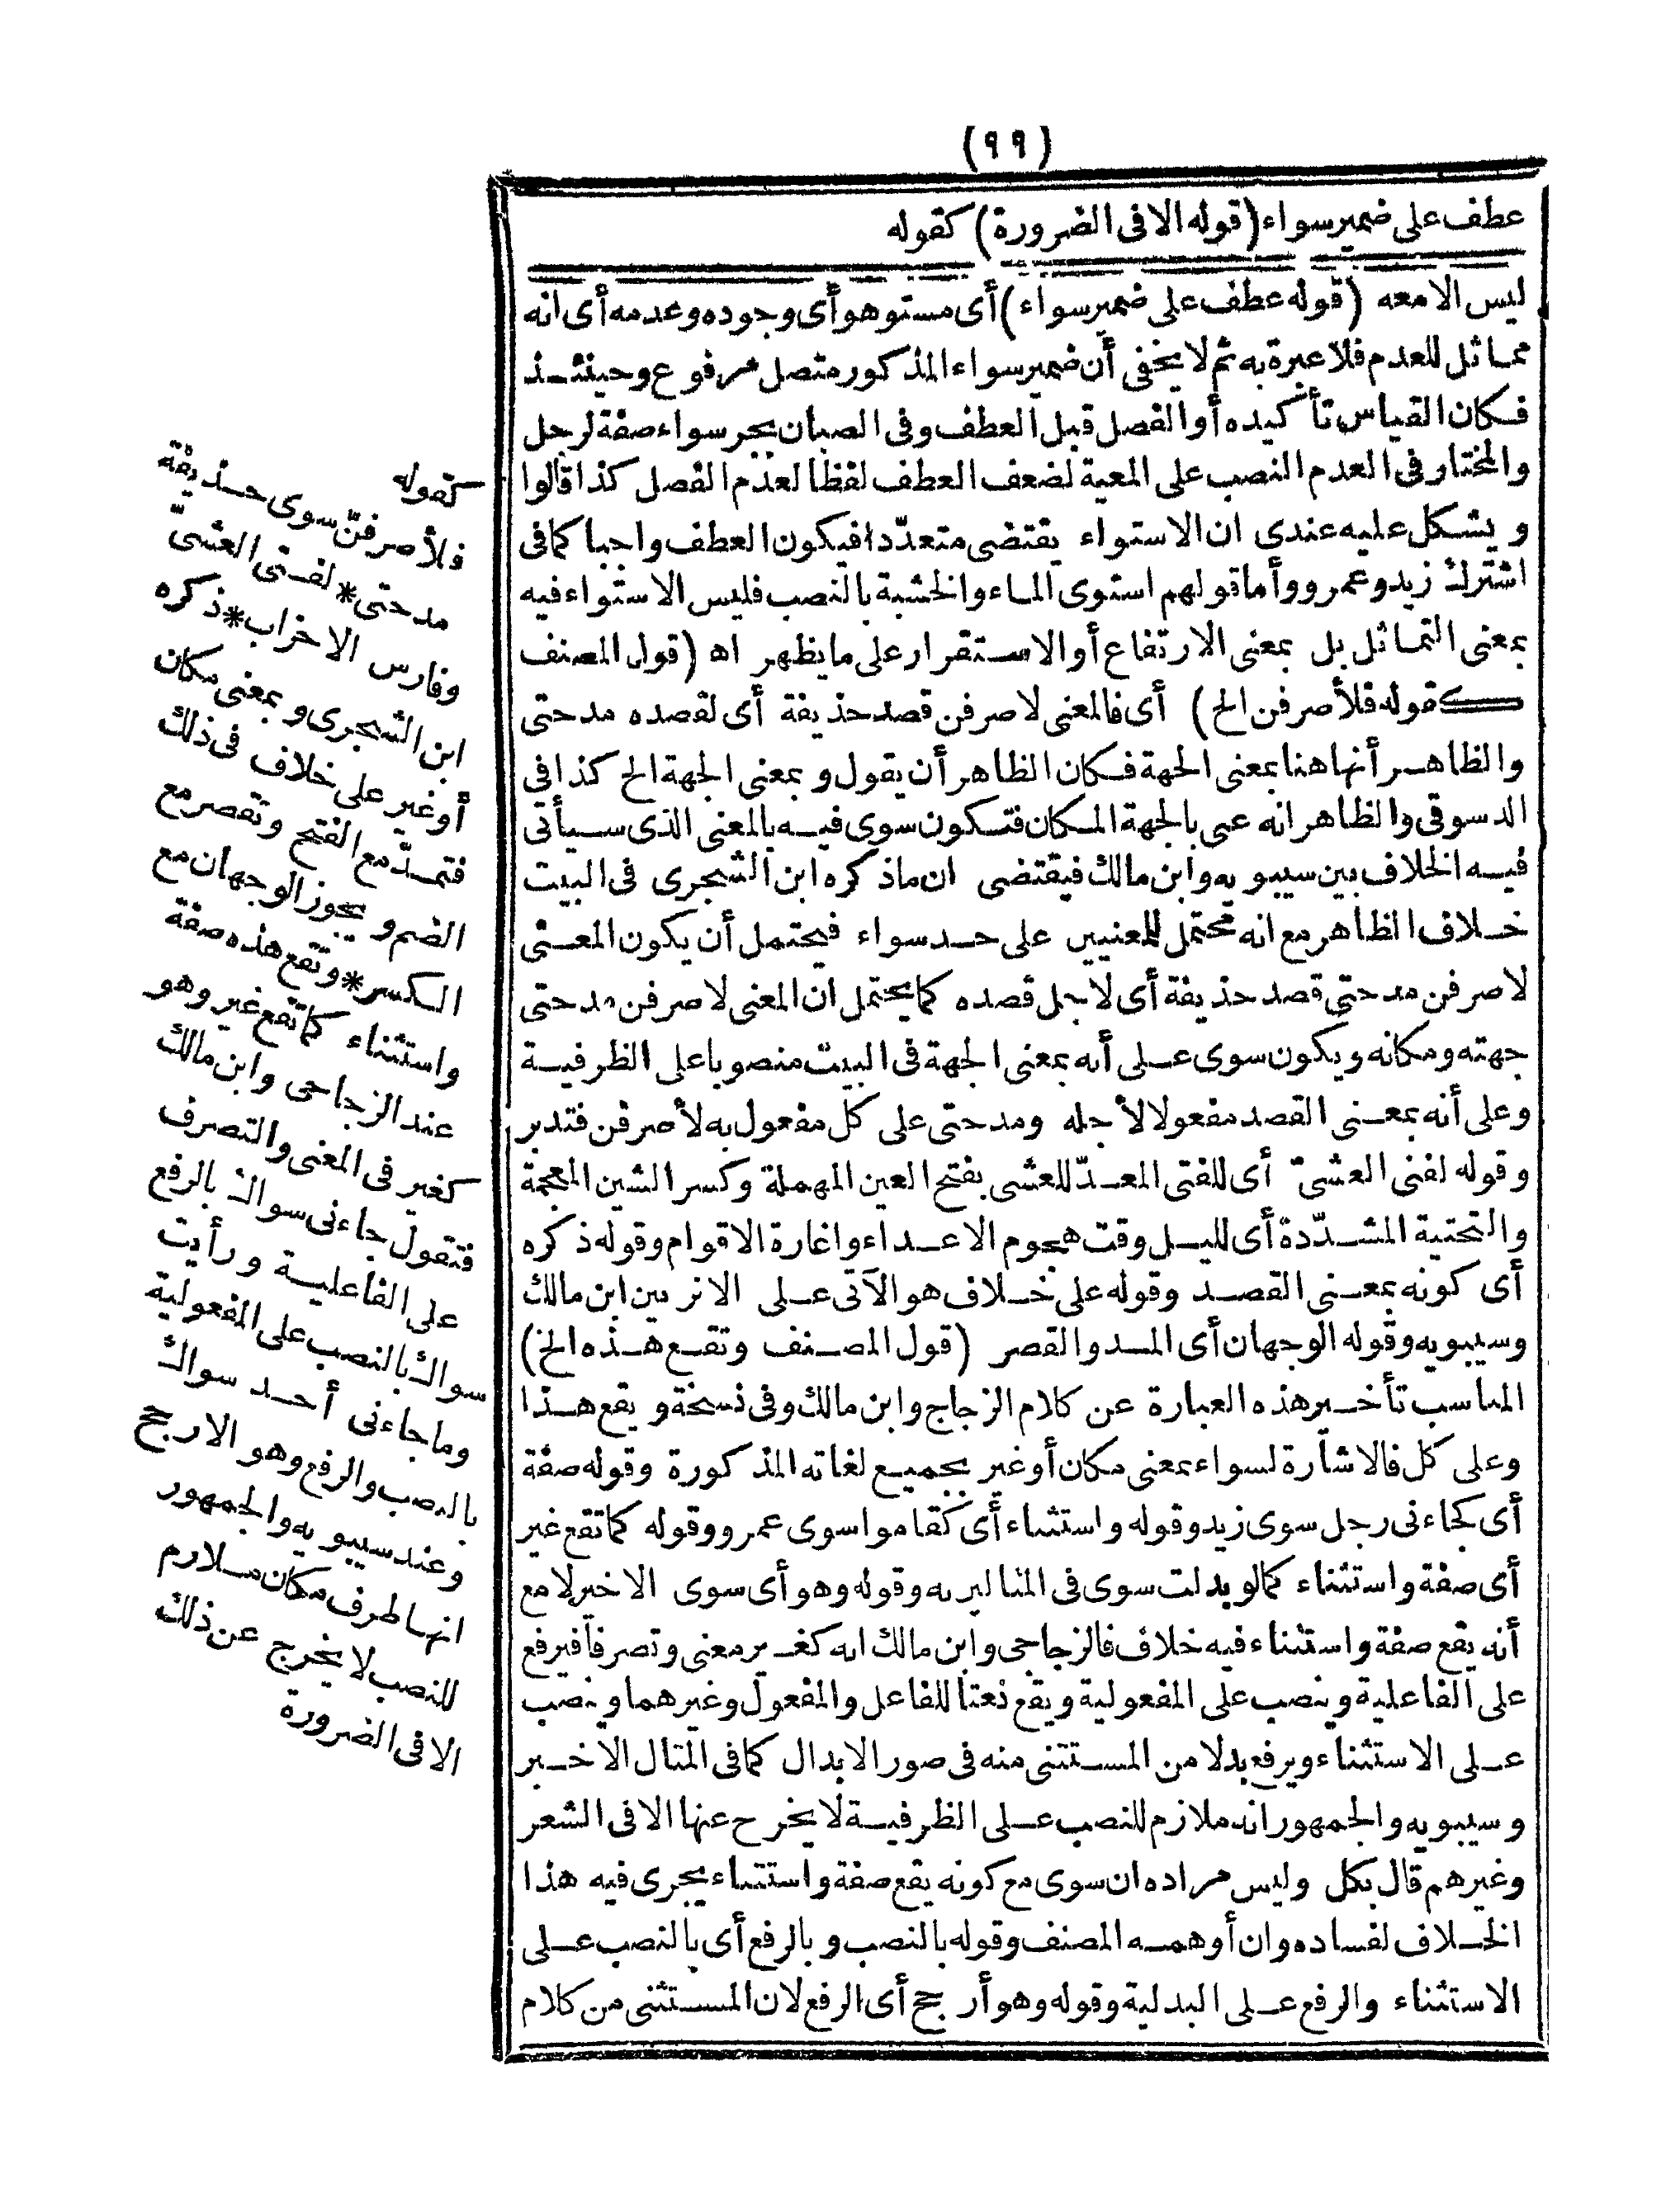 (٩٩)
عطف على ضمير سواء (قوله الا فى الضرورة) كقوله
ليس الا معه (قوله عطف على ضمير سواء) أى مستو هو أى وجوده وعدمه أى انه
مماثل للعدم فلا عبرة به ثم لا يخفى أن ضمير سواء المذكور متصل مرفوع وحينئذ
فكان القياس تأكيده أو الفصل قبل العطف وفى الصبان يجر سواء صفة لرجل
والمختار فى العدم النصب على المعية لضعف العطف لفظا لعدم الفصل كذا قالوا
ويشكل عليه عندى ان الاستواء يقتضى متعدّدا فيكون العطف واجبا كما فى
اشترك زيد وعمرو وأما قولهم استوى الماء والخشبة بالنصب فليس الاستواء فيه
بمعنى التماثل بل بمعنى الارتفاع أو الاستقرار على ما يظهر اه (قول المصنف
كقوله فلأصرفن الخ) أى فالمعنى لاصرفن قصد حذيفة أى لقصده مدحتى
والظاهر أنها هنا بمعنى الجهة فكان الظاهر أن يقول وبمعنى الجهة الخ كذا فى
الدسوقى والظاهر انه عبى بالجهة المكان فتكون سوى فيه بالمعنى الذى سيأتى
فيه الخلاف بين سيبويه وابن مالك فيقتضى ان ماذكره ابن الشجرى فى البيت
خلاف الظاهر مع انه محتمل للمعنيين على حد سواء فيحتمل أن يكون المعنى
لاصرفن مدحتى قصد حذيفة أى لاجل قصده كما يحتمل ان المعنى لاصرفن مدحتى
جهته ومكانه ويكون سوى على أنه بمعنى الجهة فى البيت منصوبا على الظرفية
وعلى أنه بمعنى القصد مفعولا لأجله ومدحتى على كل مفعول به لأصرفن فتدبر
وقوله لفتى العشىّ أى للفتى المعدّ للعشى بفتح العين المهملة وكسر الشين المعجمة
والتحتية المشدّدة أى لليل وقت هجوم الاعداء واغارة الاقوام وقوله ذكره
أى كونه بمعنى القصد وقوله على خلاف هو الآتى على الاثر بين ابن مالك
وسيبويه وقوله الوجهان أى المد والقصر (قول المصنف وتقع هذه الخ)
المناسب تأخير هذه العبارة عن كلام الزجاج وابن مالك وفى نسخة ويقع هذا
وعلى كل فالاشارة لسواء بمعنى مكان أو غير بجميع لغاته المذكورة وقوله صفة
أى كجاءنى رجل سوى زيد وقوله واستثناء أى كقاموا سوى عمرو وقوله كما تقع غير
أى صفة واستثناء كما لو بدلت سوى فى المثالين به وقوله وهو أى سوى الاخير لا مع
أنه يقع صفة واستثناء فيه خلاف فالزجاجى وابن مالك انه كغير معنى وتصرفا فيرفع
على الفاعلية وينصب على المفعولية ويقع نعتا للفاعل والمفعول وغيرهما وينصب
على الاستثناء ويرفع بدلا من المستثنى منه فى صور الابدال كما فى المثال الاخير
وسيبويه والجمهور انه ملازم للنصب على الظرفية لا يخرج عنها الا فى الشعر
وغيرهم قال بكل وليس مراده ان سوى مع كونه يقع صفة واستثناء يجرى فيه هذا
الخلاف لفساده وان أوهمه المصنف وقوله بالنصب وبالرفع أى بالنصب على
الاستثناء والرفع على البدلية وقوله وهو أرجح أى الرفع لان المستثنى من كلام
كقوله
فلأصرفنّ سوى حذيفة
مدحتى * لفتى العشىّ
وفارس الاحزاب * ذكره
ابن الشجرى وبمعنى مكان
أو غير على خلاف فى ذلك
فتمدّ مع الفتح وتقصر مع
الضم ويجوز الوجهان مع
الكسر * وتقع هذه صفة
واستثناء كما تقع غير وهو
عند الزجاجى وابن مالك
كغير فى المعنى والتصرف
فتقول جاءنى سواك بالرفع
على الفاعلية ورأيت
سواك بالنصب على المفعولية
وما جاءنى أحد سواك
بالنصب والرفع وهو الارجح
وعند سيبويه والجمهور
انها ظرف مكان ملازم
للنصب لا يخرج عن ذلك
الا فى الضرورة